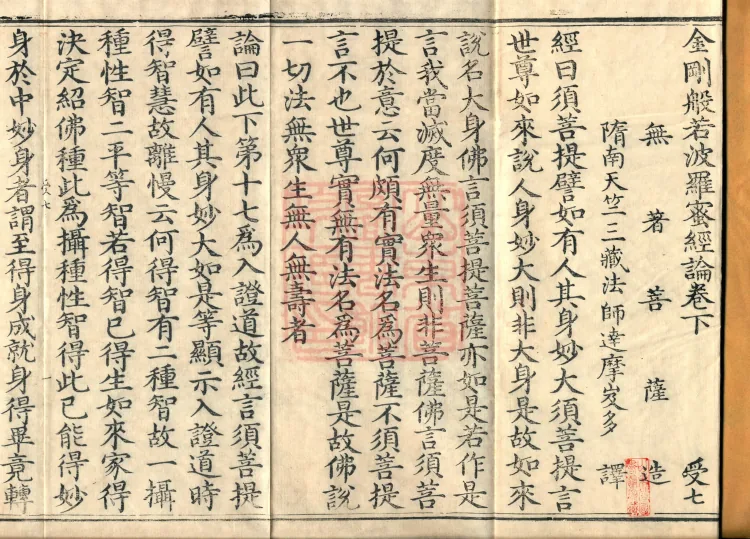 金剛般若波羅蜜經論卷下 受七
無著菩薩造
隋南天竺三藏法師達摩笈多譯
經曰須菩提譬如有人其身妙大須菩提言
世尊如來說人身妙大則非大身是故如來
說名大身佛言須菩提菩薩亦如是若作是
言我當滅度無量眾生則非菩薩佛言須菩
提於意云何頗有實法名為菩薩不須菩提
言不也世尊實無有法名為菩薩是故佛說
一切法無眾生無人無壽者
論曰此下第十七為入證道故經言須菩提
譬如有人其身妙大如是等顯示入證道時
得智慧故離慢云何得智有二種智故一攝
種性智二平等智若得智已得生如來家得
決定紹佛種此為攝種性智得此已能得妙
身於中妙身者謂至得身成就身得畢竟轉